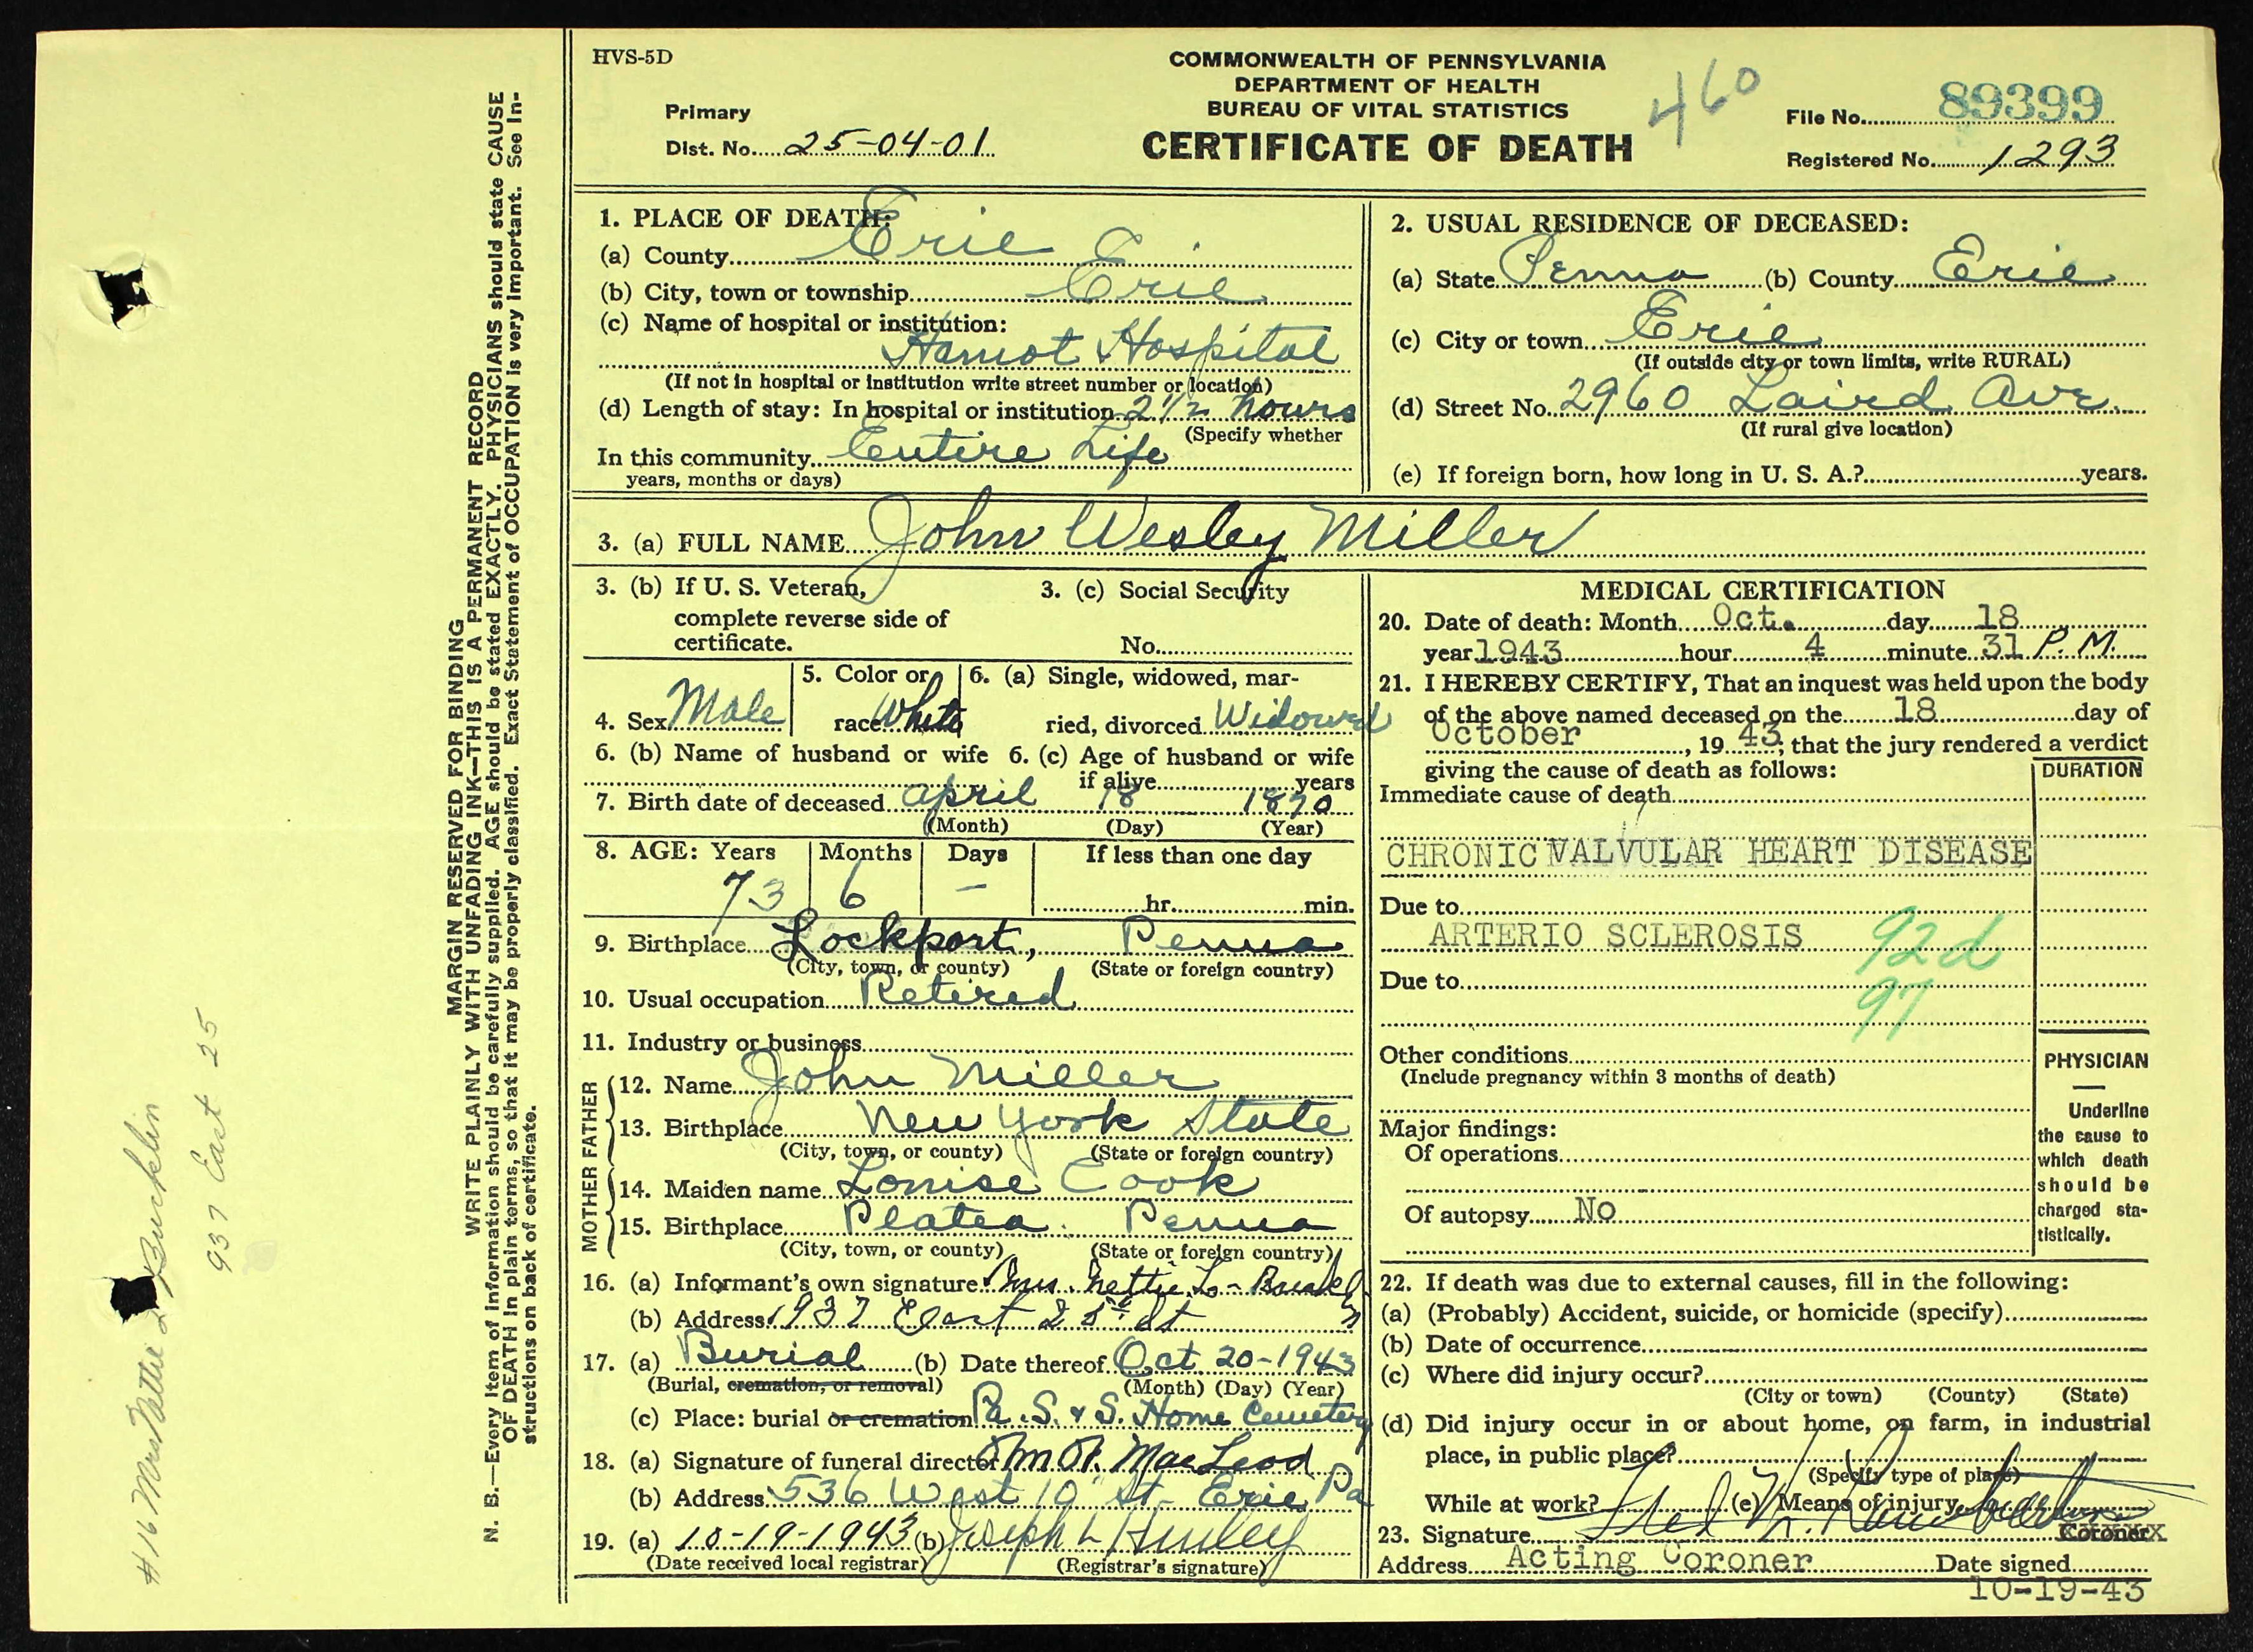 HVS-5D
COMMONWEALTH OF PENNSYLVANIA
DEPARTMENT OF HEALTH
BUREAU OF VITAL STATISTICS
CERTIFICATE OF DEATH
460
Primary
Dist. No. 25-04-01
File No. 89399
Registered No. 1293
MARGIN RESERVED FOR BINDING
WRITE PLAINLY WITH UNFADING INK—THIS IS A PERMANENT RECORD
N. B.—Every item of information should be carefully supplied. AGE should be stated EXACTLY. PHYSICIANS should state CAUSE
OF DEATH in plain terms, so that it may be properly classified. Exact Statement of OCCUPATION is very important. See In-
structions on back of certificate.
#16 Mrs Nettie L Bucklin
937 East 25
1. PLACE OF DEATH:
(a) County Erie
(b) City, town or township Erie
(c) Name of hospital or institution:
Hamot Hospital
(If not in hospital or institution write street number or location)
(d) Length of stay: In hospital or institution 2 1/2 hours
(Specify whether
In this community Entire Life
years, months or days)
2. USUAL RESIDENCE OF DECEASED:
(a) State Penna (b) County Erie
(c) City or town Erie
(If outside city or town limits, write RURAL)
(d) Street No. 2960 Laird Ave.
(If rural give location)
(e) If foreign born, how long in U. S. A.? years.
3. (a) FULL NAME John Wesley Miller
3. (b) If U. S. Veteran,
complete reverse side of
certificate.
3. (c) Social Security
No.
4. Sex Male
5. Color or
race White
6. (a) Single, widowed, mar-
ried, divorced Widowed
6. (b) Name of husband or wife
6. (c) Age of husband or wife
if alive years
7. Birth date of deceased April 18 1870
(Month) (Day) (Year)
8. AGE: Years Months Days If less than one day
73 6 — hr. min.
9. Birthplace Lockport, Penna
(City, town, or county) (State or foreign country)
10. Usual occupation Retired
11. Industry or business
FATHER
12. Name John Miller
13. Birthplace New York State
(City, town, or county) (State or foreign country)
MOTHER
14. Maiden name Louise Cook
15. Birthplace Platea. Penna
(City, town, or county) (State or foreign country)
16. (a) Informant's own signature Mrs. Nettie L. Bucklin
(b) Address 937 East 25th St
17. (a) Burial (b) Date thereof Oct 20-1943
(Burial, cremation, or removal) (Month) (Day) (Year)
(c) Place: burial or cremation Pa. S. & S. Home Cemetery
18. (a) Signature of funeral director MacLeod
(b) Address 536 West 10" St- Erie Pa
19. (a) 10-19-1943 (b) Joseph L
(Date received local registrar) (Registrar's signature)
MEDICAL CERTIFICATION
20. Date of death: Month Oct. day 18
year 1943 hour 4 minute 31 P. M.
21. I HEREBY CERTIFY, That an inquest was held upon the body
of the above named deceased on the 18 day of
October, 19 43, that the jury rendered a verdict
giving the cause of death as follows:
DURATION
Immediate cause of death
CHRONIC VALVULAR HEART DISEASE
Due to
ARTERIO SCLEROSIS 92d
Due to
97
Other conditions
(Include pregnancy within 3 months of death)
Major findings:
Of operations
Of autopsy No
PHYSICIAN
—
Underline
the cause to
which death
should be
charged sta-
tistically.
22. If death was due to external causes, fill in the following:
(a) (Probably) Accident, suicide, or homicide (specify)
(b) Date of occurrence
(c) Where did injury occur?
(City or town) (County) (State)
(d) Did injury occur in or about home, on farm, in industrial
place, in public place?
(Specify type of place)
While at work? (e) Means of injury
23. Signature
Coroner
Address Acting Coroner Date signed
10-19-43